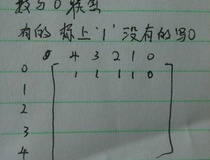 数与0类型
有的标上'1'没有的写0
0 4 3 2 1 0
0 1 1 1 1 0
1
2
3
4